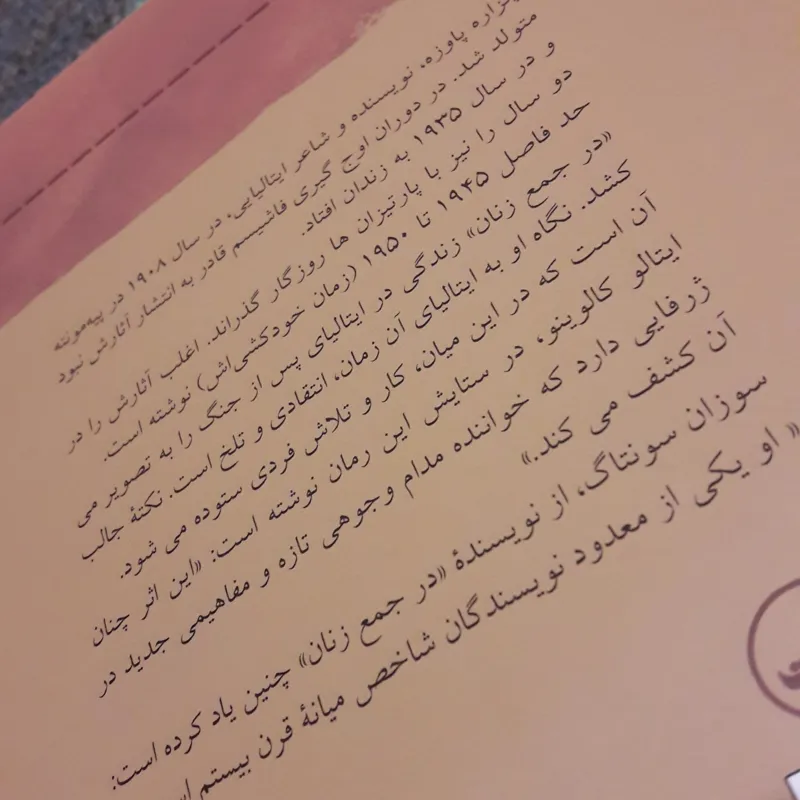 پاوزه، نویسنده و شاعر ایتالیایی، در سال ۱۹۰۸ در پیه‌مونته
متولد شد. در دوران اوج گیری فاشیسم قادر به انتشار آثارش نبود
و در سال ۱۹۳۵ به زندان افتاد.
دو سال را نیز با پارتیزان ها روزگار گذراند. اغلب آثارش را در
حد فاصل ۱۹۴۵ تا ۱۹۵۰ (زمان خودکشی‌اش) نوشته است.
«در جمع زنان» زندگی در ایتالیای پس از جنگ را به تصویر می
کشد. نگاه او به ایتالیای آن زمان، انتقادی و تلخ است. نکتهٔ جالب
آن است که در این میان، کار و تلاش فردی ستوده می شود.
ایتالو کالوینو، در ستایش این رمان نوشته است: «این اثر چنان
ژرفایی دارد که خواننده مدام وجوهی تازه و مفاهیمی جدید در
آن کشف می کند.»
سوزان سونتاگ، از نویسندهٔ «در جمع زنان» چنین یاد کرده است:
« او یکی از معدود نویسندگان شاخص میانهٔ قرن بیستم